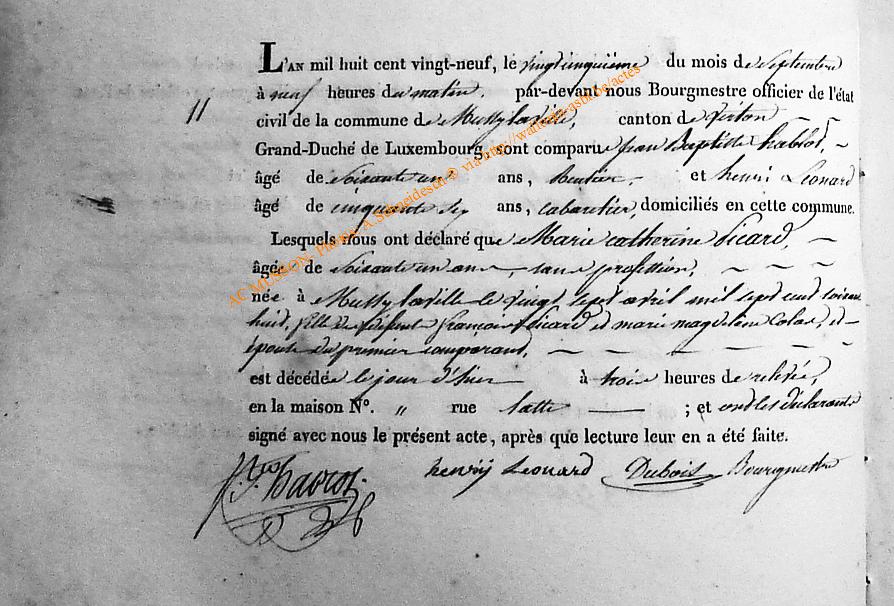 L'AN mil huit cent vingt-neuf, le vingt cinquième du mois de Septembre
à neuf heures du matin, par-devant nous Bourgmestre officier de l'état
11
civil de la commune de Mussy laville, canton de virton
Grand-Duché de Luxembourg, sont comparus jean Baptiste habrot,
âgé de Soixante un ans, Rentier et henri Leonard
âgé de cinquante six ans, cabaretier, domiciliés en cette commune.
Lesquels nous ont déclaré que Marie catherine Sicard,
âgée de Soixante un ans, sans profession,
née à Mussy laville le vingt sept avril mil sept cent soixante
huit, fille de défunt françois Sicard et marie magdeleine Colas, et
épouse du premier comparant,
est décédée le jour d'hier à trois heures de relevée,
en la maison N°. " rue latte ; et ont les déclarants
signé avec nous le présent acte, après que lecture leur en a été faite.
henrij Leonard Dubois Bourgmestre
AC MUSSON- Photos A. Schneidesch © via http://waltzing-asbl.be/actes